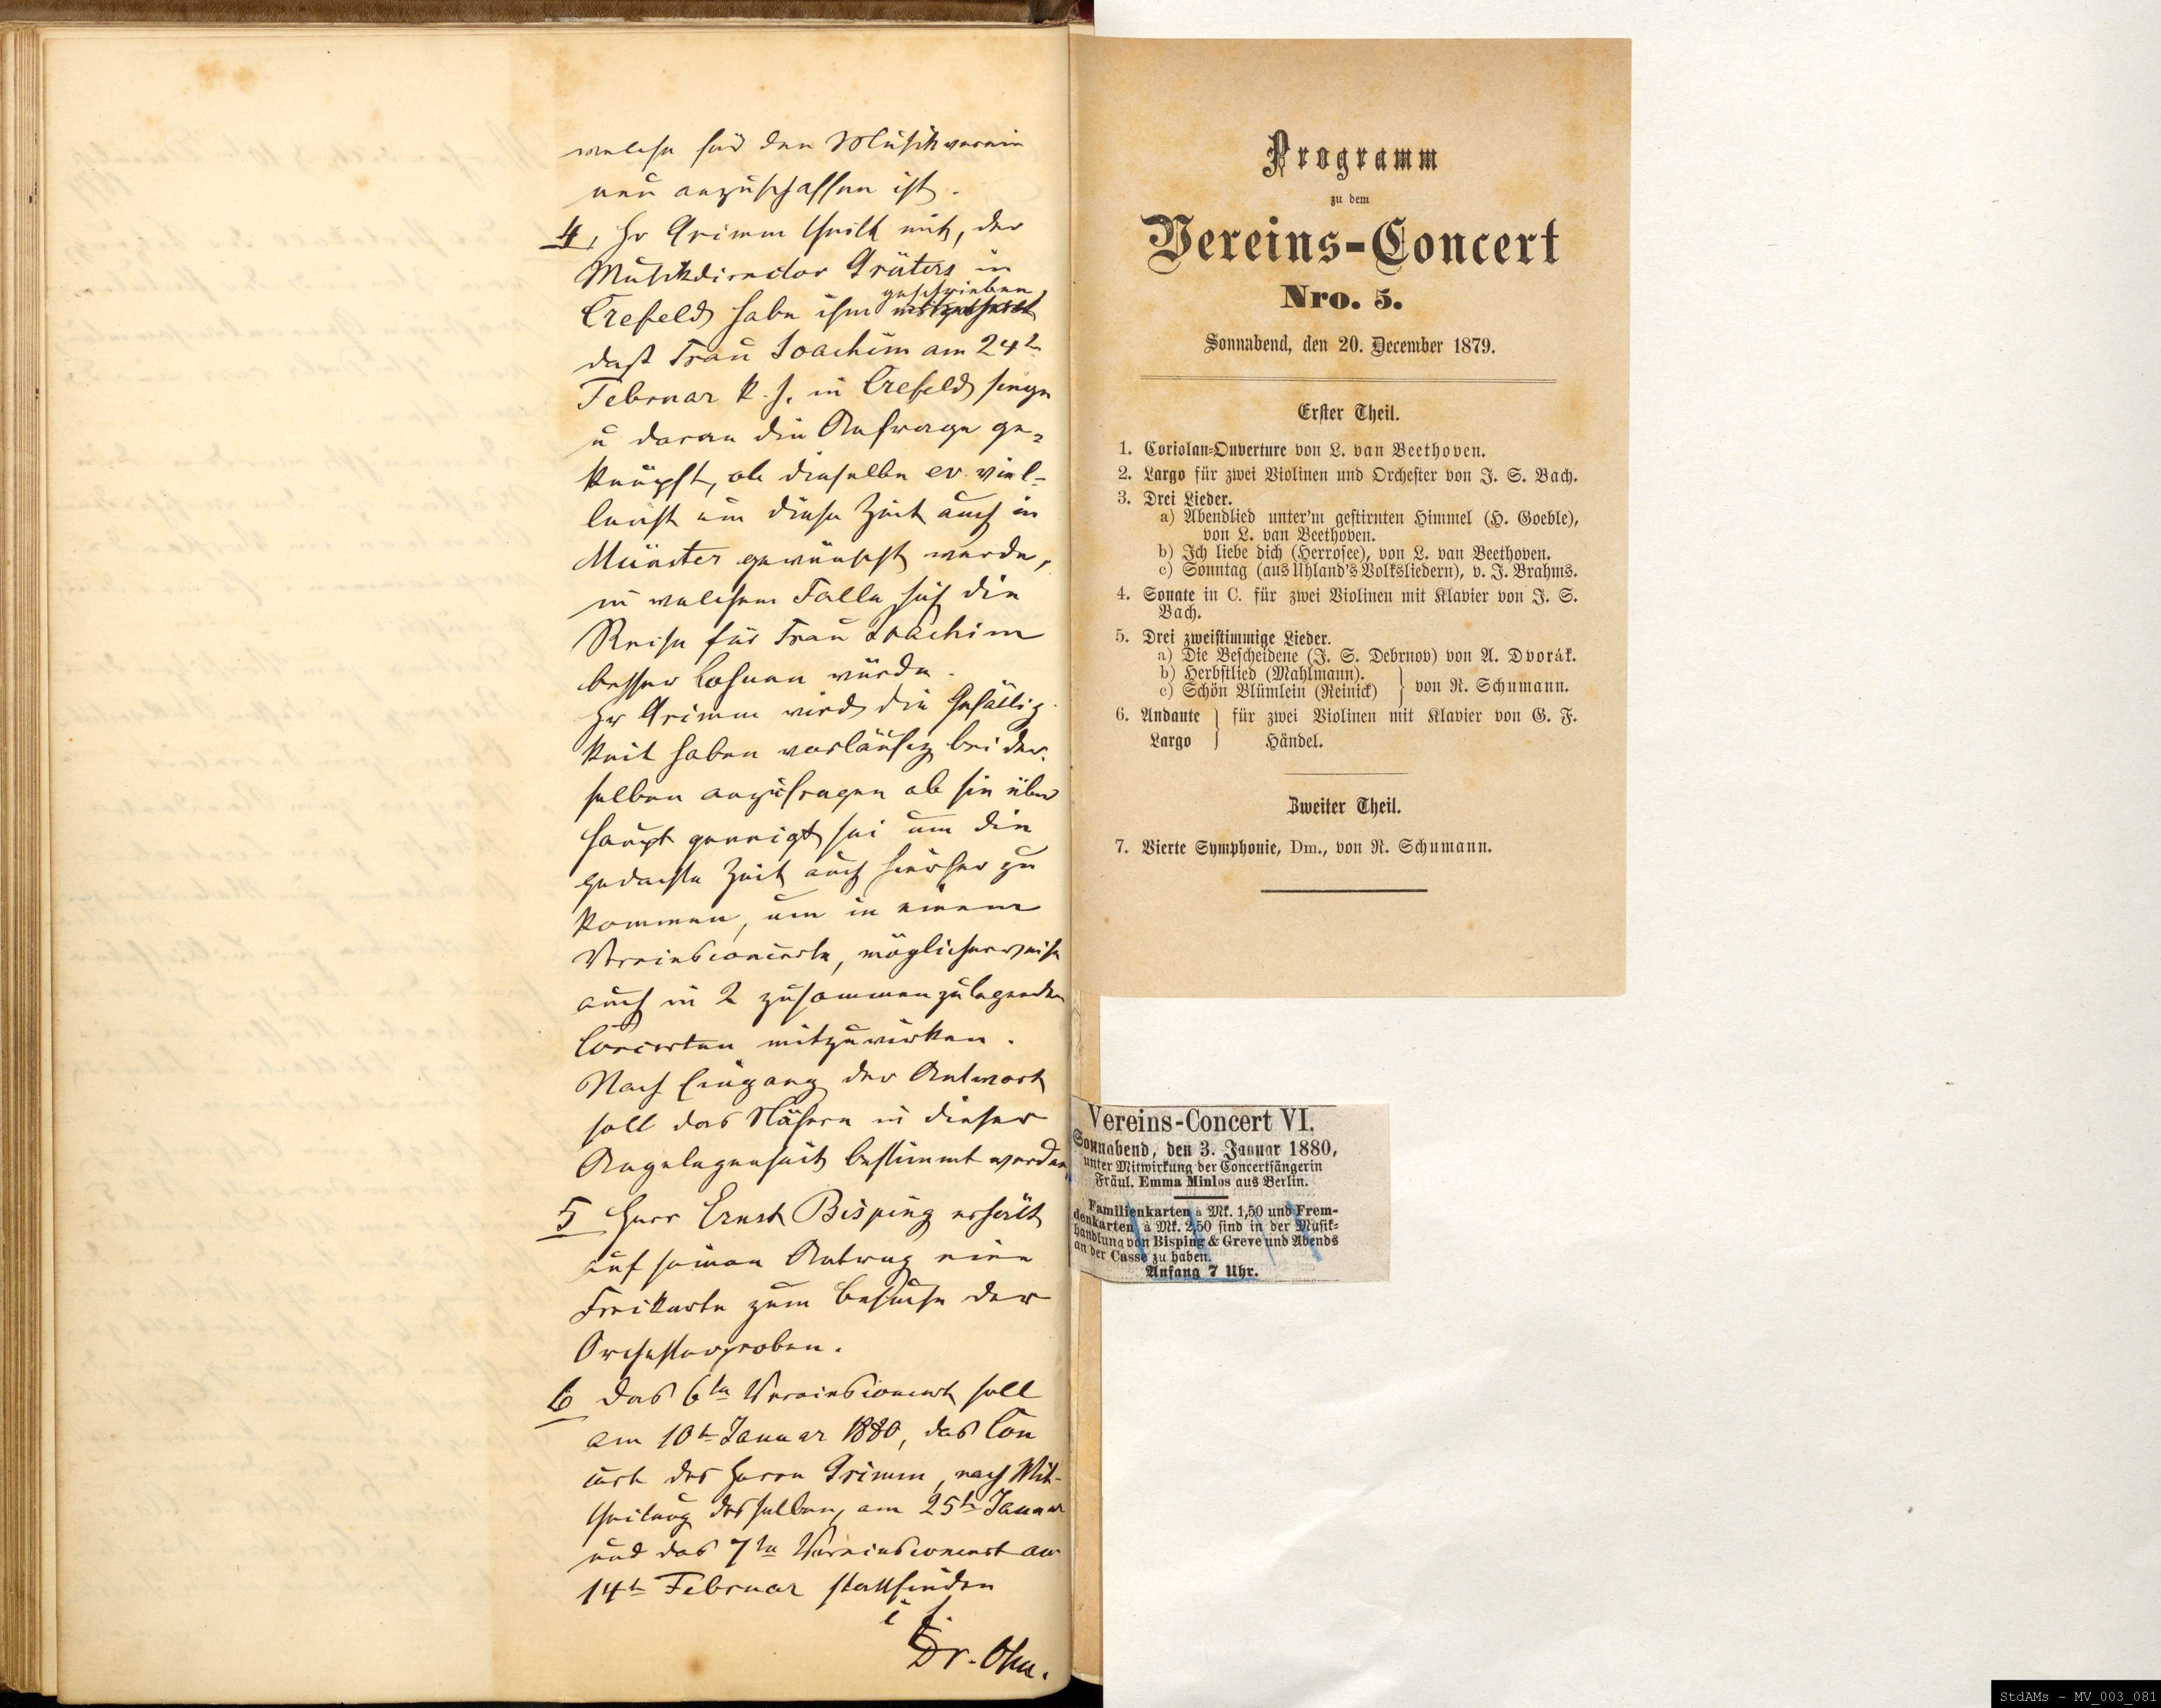 welche für den Musikverein
neu anzuschaffen ist.
4, Hr Grimm theilt mit, der
Musikdirector Grüters in
geschrieben,
Crefeld habe ihm mitgetheilt
daß Frau Joachim am 24t
Februar k. J. in Crefeld singe
u daran die Anfrage ge-
knüpft, ob dieselbe ev. viel-
leicht um diese Zeit auch in
Münster gewünscht werde,
in welchem Falle sich die
Reise für Frau Joachim
besser lohnen würde.
Hr Grimm wird die Gefällig-
keit haben vorläufig bei der-
selben anzufragen ob sie über
haupt geneigt sei um die
gedachte Zeit auch hierher zu
kommen, um in einem
Vereinsconcerte, möglicherweise
auch in 2 zusammenzulegenden
Concerten mitzuwirken.
Nach Eingang der Antwort
soll das Nähere in dieser
Angelegenheit bestimmt werden
5 Herr Ernst Bisping erhält
auf seinen Antrag eine
Freikarte zum Besuche der
Orchesterproben.
6 Das 6te Vereinsconcert soll
am 10t Januar 1880, das Con
cert des Herrn Grimm, nach Mit-
theilung desselben, am 25t Januar
und das 7te Vereinsconcert am
14t Februar stattfinden
Dr. Ohm.
Programm
zu dem
Vereins-Concert
Nro. 5.
Sonnabend, den 20. December 1879.
Erster Theil.
1. Coriolan-Ouverture von L. van Beethoven.
2. Largo für zwei Violinen und Orchester von J. S. Bach.
3. Drei Lieder.
a) Abendlied unter'm gestirnten Himmel (H. Goeble),
von L. van Beethoven.
b) Ich liebe dich (Herrosee), von L. van Beethoven.
c) Sonntag (aus Uhland's Volksliedern), v. J. Brahms.
4. Sonate in C. für zwei Violinen mit Klavier von J. S.
Bach.
5. Drei zweistimmige Lieder.
a) Die Bescheidene (J. S. Debrnov) von A. Dvorák.
b) Herbstlied (Mahlmann).
c) Schön Blümlein (Reinick) } von R. Schumann.
6. Andante } für zwei Violinen mit Klavier von G. F.
Largo } Händel.
Zweiter Theil.
7. Vierte Symphonie, Dm., von R. Schumann.
Vereins-Concert VI.
Sonnabend, den 3. Januar 1880,
unter Mitwirkung der Concertsängerin
Fräul. Emma Minlos aus Berlin.
Familienkarten à Mk. 1,50 und Frem-
denkarten à Mk. 2,50 sind in der Musik-
handlung von Bisping & Greve und Abends
an der Casse zu haben.
Anfang 7 Uhr.
StdAMs - MV_003_081